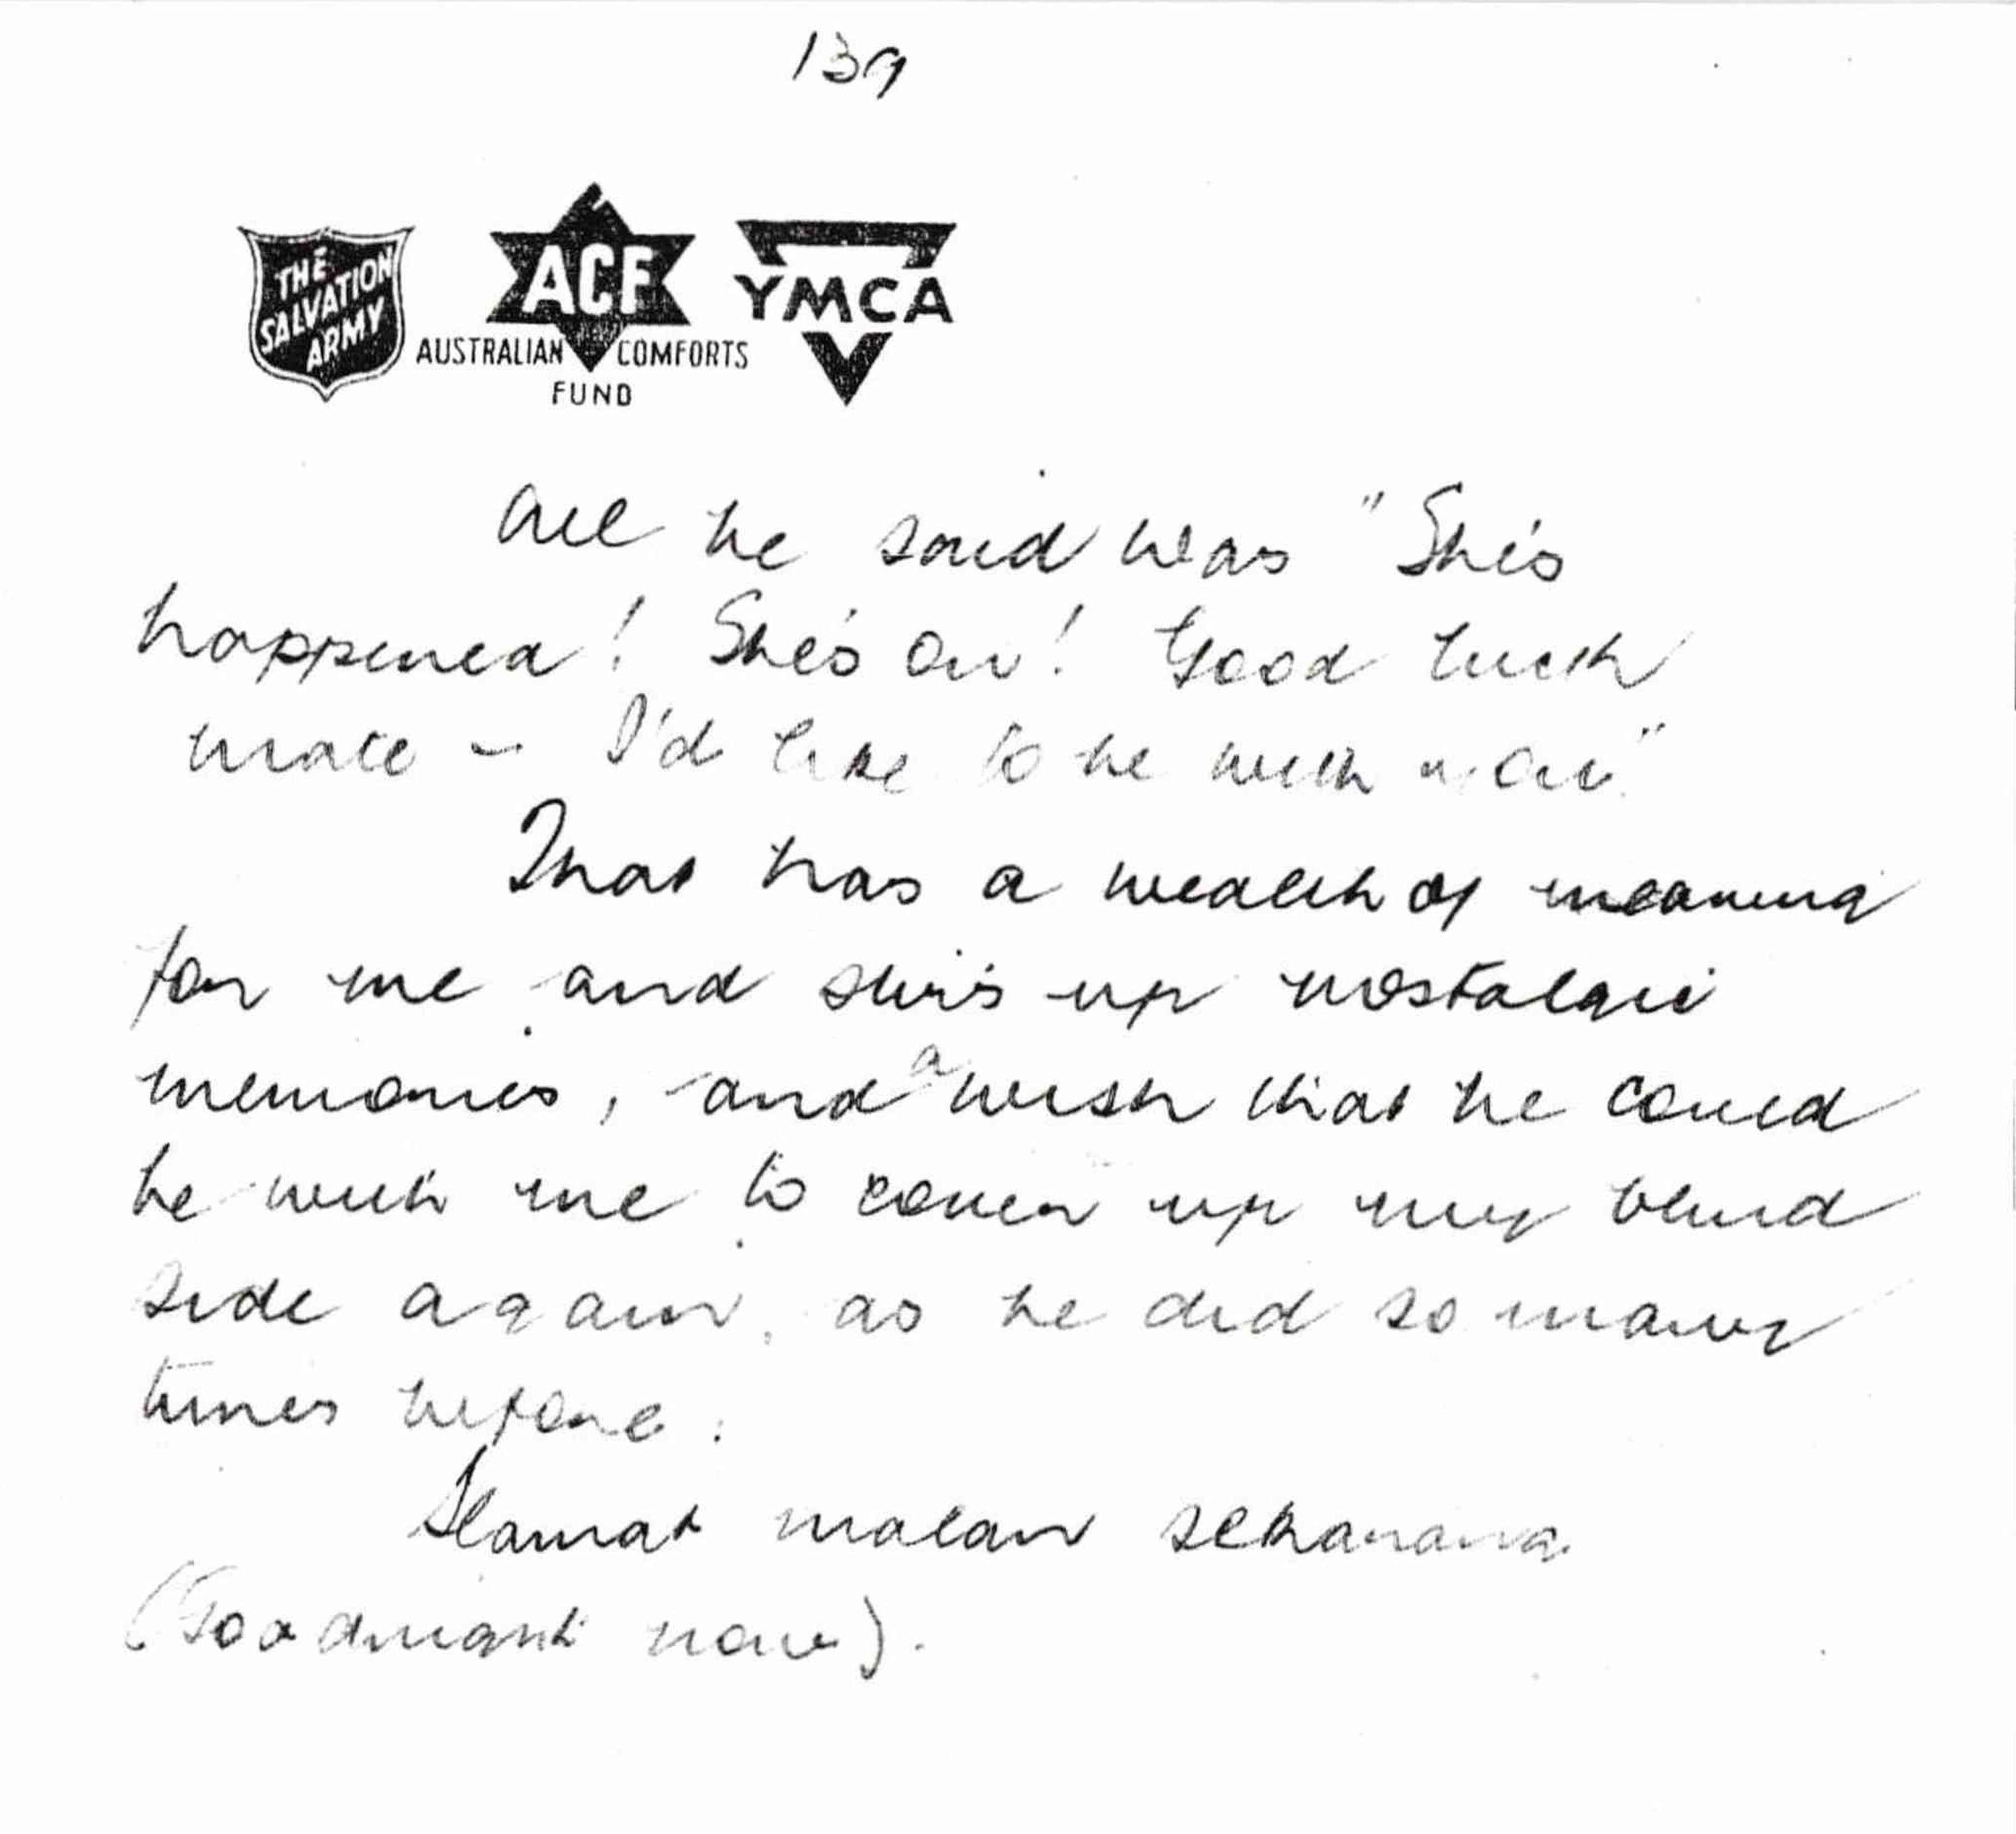 139
THE
SALVATION
ARMY
ACF
AUSTRALIAN COMFORTS
FUND
YMCA
All he said was "She's
happened! She's on! Good luck
mate - I'd like to be with you"
That has a wealth of meaning
for me and stirs up nostalgic
memories, and a wish that he could
be with me to cover up my blind
side again, as he did so many
times before.
Slamat malan sekarang
(Goodnight now).